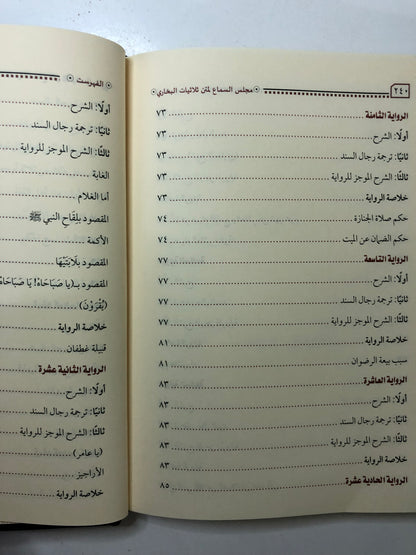 ٢٤٠ مجلس السماع لمتن ثلاثيات البخاري
الرواية الثامنة ٧٣
أولًا: الشرح ٧٣
ثانيًا: ترجمة رجال السند ٧٣
ثالثًا: الشرح الموجز للرواية ٧٣
خلاصة الرواية ٧٣
حكم صلاة الجنازة ٧٤
حكم الضمان عن الميت ٧٤
الرواية التاسعة ٧٧
أولًا: الشرح ٧٧
ثانيًا: ترجمة رجال السند ٧٧
ثالثًا: الشرح الموجز للرواية ٧٧
خلاصة الرواية ٨١
سبب بيعة الرضوان ٨١
الرواية العاشرة ٨٣
أولًا: الشرح ٨٣
ثانيًا: ترجمة رجال السند ٨٣
ثالثًا: الشرح الموجز للرواية ٨٣
خلاصة الرواية ٨٣
الرواية الحادية عشرة ٨٥
الفهرست
أولًا: الشرح
ثانيًا: ترجمة رجال السند
ثالثًا: الشرح الموجز للرواية
الغابة
أما الغلام
المقصود بلِقَاح النبي ﷺ
الأكمة
المقصود بلَابَتَيْهَا
المقصود بـ(يا صَبَاحَاهُ! يَا صَبَاحَاهُ
(يُقْرَوْنَ)
خلاصة الرواية
قبيلة غطفان
الرواية الثانية عشرة
أولًا: الشرح
ثانيًا: ترجمة رجال السند
ثالثًا: الشرح الموجز للرواية
(يا عامر)
الأراجيز
خلاصة الرواية